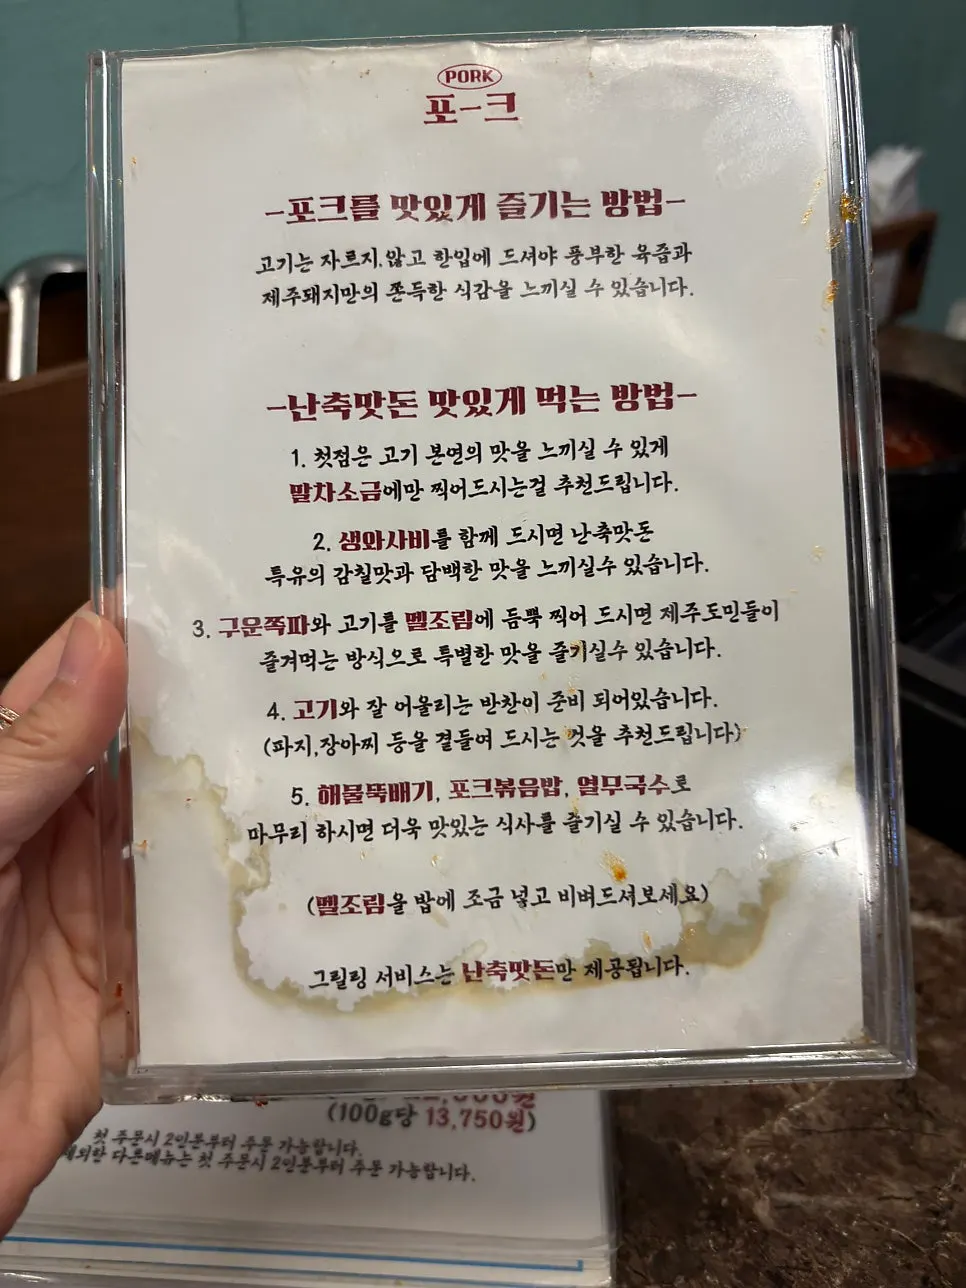 PORK
포-크
-포크를 맛있게 즐기는 방법-
고기는 자르지.않고 한입에 드셔야 풍부한 육즙과
제주돼지만의 쫀득한 식감을 느끼실 수 있습니다.
-난축맛돈 맛있게 먹는 방법-
1. 첫점은 고기 본연의 맛을 느끼실 수 있게
말차소금에만 찍어드시는걸 추천드립니다.
2. 생와사비를 함께 드시면 난축맛돈
특유의 감칠맛과 담백한 맛을 느끼실수 있습니다.
3. 구운쪽파와 고기를 멜조림에 듬뿍 찍어 드시면 제주도민들이
즐겨먹는 방식으로 특별한 맛을 즐기실수 있습니다.
4. 고기와 잘 어울리는 반찬이 준비 되어있습니다.
(파지,장아찌 등을 곁들여 드시는 것을 추천드립니다)
5. 해물뚝배기, 포크볶음밥, 열무국수로
마무리 하시면 더욱 맛있는 식사를 즐기실 수 있습니다.
(멜조림을 밥에 조금 넣고 비벼드셔보세요)
그릴링 서비스는 난축맛돈만 제공됩니다.
(100g당 13,750원)
첫 주문시 2인분부터 주문 가능합니다.
다른메뉴는 첫 주문시 2인분부터 주문 가능합니다.